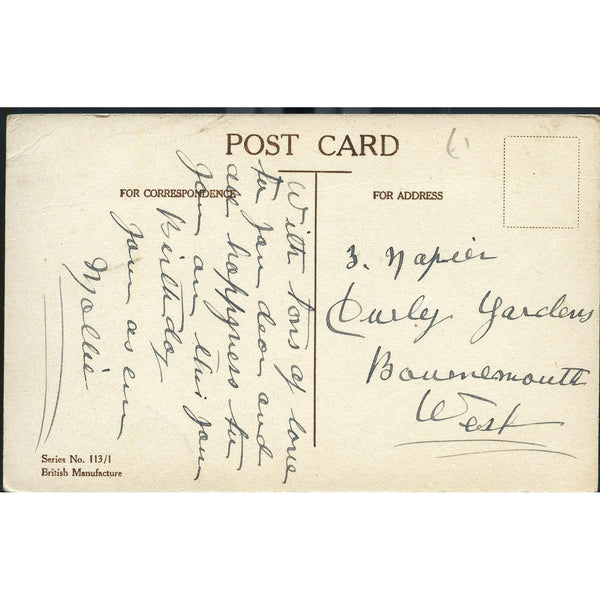 POST CARD
FOR CORRESPONDENCE
FOR ADDRESS
With tons of love
to you dear and
all happyness to
you on this your
Birthday
yours as ever
Mollie
3. Napier
Curly Gardens
Bournemouth
West
Series No. 113/1
British Manufacture